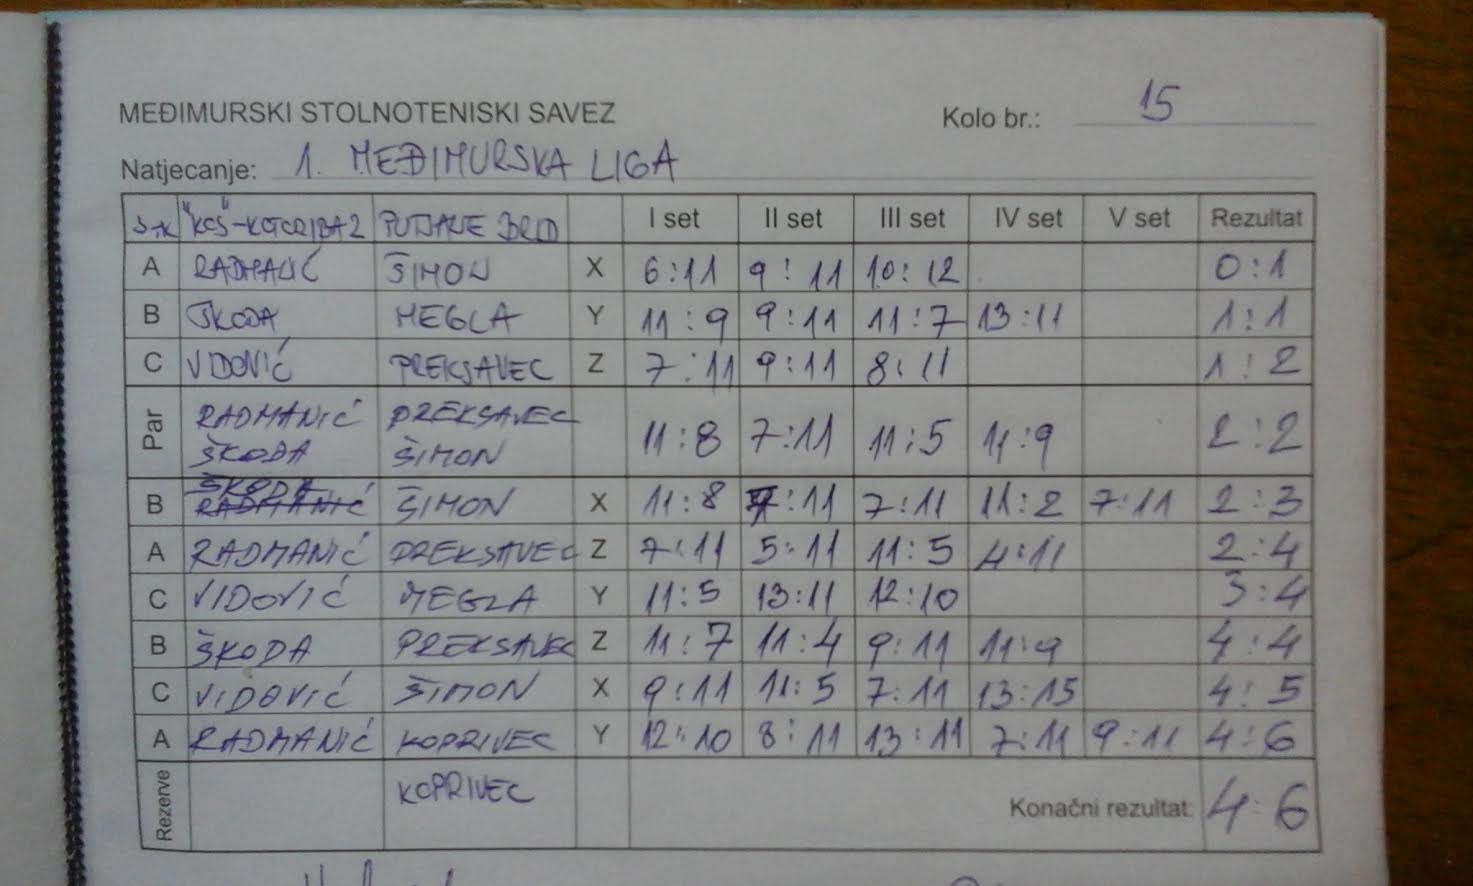 MEĐIMURSKI STOLNOTENISKI SAVEZ Kolo br.: 15
Natjecanje: 1. MEĐIMURSKA LIGA
"KOŠ"-KOTORIBA 2 PUTJANE BRID I set II set III set IV set V set Rezultat
A RADMANIĆ ŠIMON X 6:11 9:11 10:12 0:1
B ŠKODA MEGLA Y 11:9 9:11 11:7 13:11 1:1
C VIDOVIĆ PREKSAVEC Z 7:11 9:11 8:11 1:2
Par RADMANIĆ PREKSAVEC
ŠKODA ŠIMON 11:8 7:11 11:5 11:9 2:2
B ŠKODA RADMANIĆ ŠIMON X 11:8 7:11 7:11 11:2 7:11 2:3
A RADMANIĆ PREKSAVEC Z 7:11 5:11 11:5 4:11 2:4
C VIDOVIĆ MEGLA Y 11:5 13:11 12:10 3:4
B ŠKODA PREKSAVEC Z 11:7 11:4 9:11 11:9 4:4
C VIDOVIĆ ŠIMON X 9:11 11:5 7:11 13:15 4:5
A RADMANIĆ KOPRIVEC Y 12:10 8:11 13:11 7:11 9:11 4:6
Rezerve KOPRIVEC Konačni rezultat: 4:6